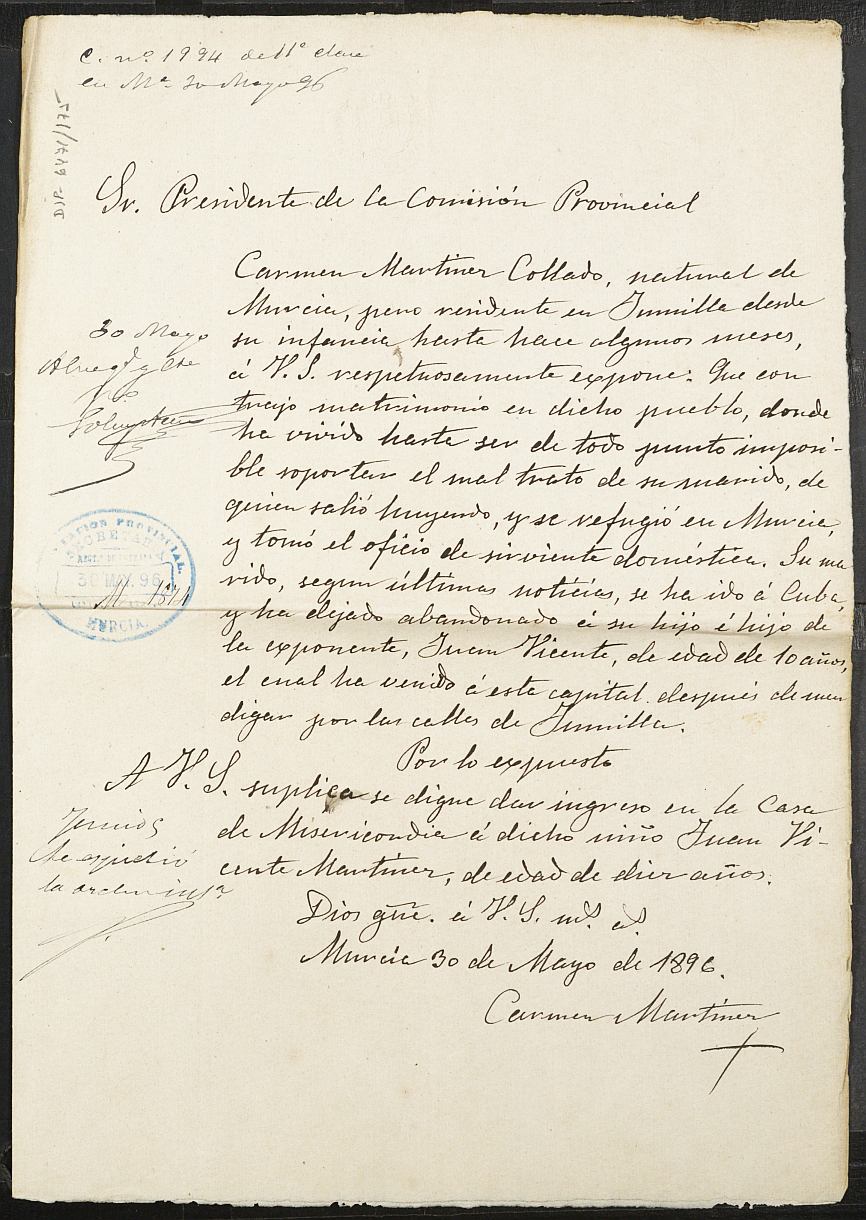 C. nº 1994 de 11ª clase
en Mª 30 Mayo 96
DIP. 6719/175
Sr. Presidente de la Comisión Provincial
Carmen Martinez Collado, natural de
Murcia, pero residente en Jumilla desde
su infancia hasta hace algunos meses,
á V.S. respetuosamente expone: Que con
trajo matrimonio en dicho pueblo, donde
ha vivido hasta ser de todo punto imposi-
ble soportar el mal trato de su marido, de
quien salió huyendo, y se refugió en Murcia,
y tomó el oficio de sirviente doméstica. Su ma
rido, segun últimas noticias, se ha ido á Cuba,
y ha dejado abandonado á su hijo é hijo de
la exponente, Juan Vicente, de edad de 10 años,
el cual ha venido á esta capital despues de men
digar por las calles de Jumilla.
Por lo expuesto
A V.S. suplica se digne dar ingreso en la Casa
de Misericordia á dicho niño Juan Vi-
cente Martinez, de edad de diez años.
Dios gũe. á V.S. mˢ. aˢ.
Murcia 30 de Mayo de 1896.
Carmen Martinez
30 Mayo
PROVINCIAL
SECRETARIA
30 MAY. 96
MURCIA.
se expidió
la orden